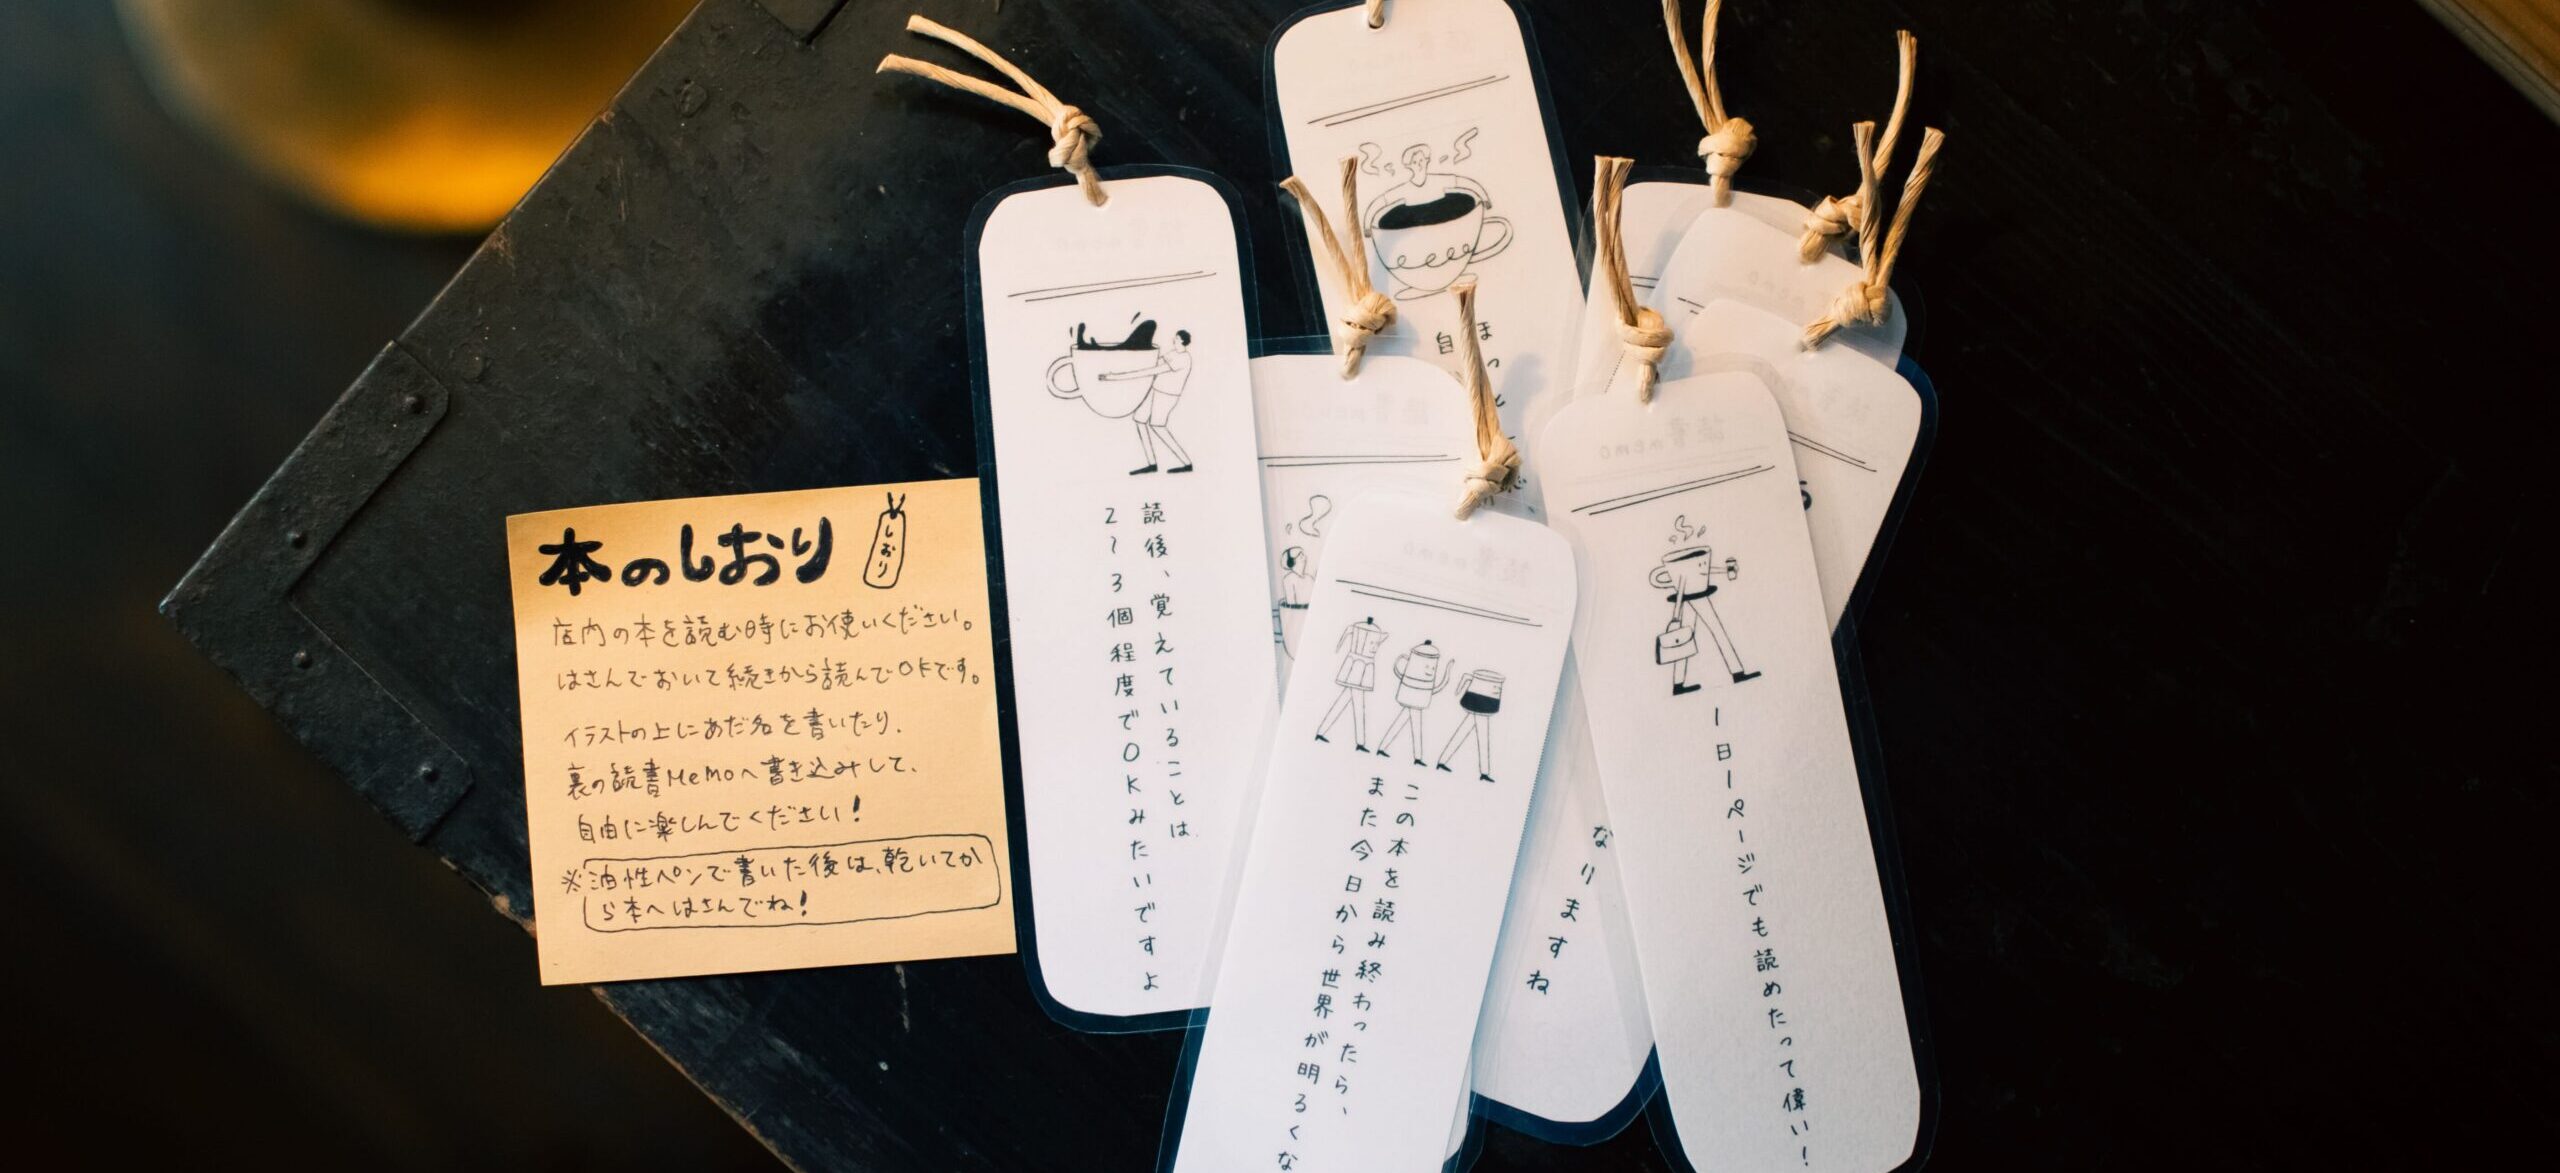 本のしおり
しおり
店内の本を読む時にお使いください。
はさんでおいて続きから読んでOKです。
イラストの上にあだ名を書いたり、
裏の読書MeMoへ書き込みして、
自由に楽しんでください！
※油性ペンで書いた後は、乾いてか
ら本へはさんでね！
読後、覚えていることは、
2～3個程度でOKみたいですよ
ほっと
自
この本を読み終わったら、
また今日から世界が明るくな
なりますね
1日1ページでも読めたって偉い！